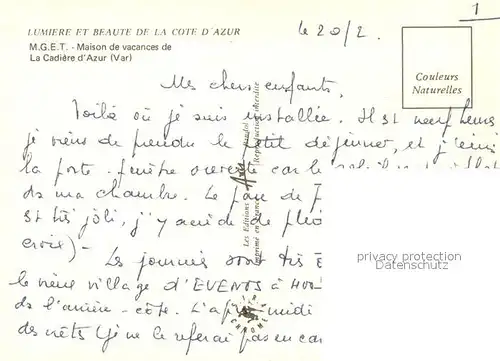 LUMIERE ET BEAUTE DE LA COTE D'AZUR
M.G.E.T. - Maison de vacances de
La Cadière d'Azur (Var)
le 20/2.
1
Couleurs
Naturelles
Mes chers enfants,
Voilà où je suis installée. Il est neuf heures
je viens de prendre le petit déjeuner, et j'écris
la porte-fenêtre ouverte car le soleil
ds ma chambre. Le parc de
est très joli, j'y accède de
croix) -
Les journées sont très
le vieux village d'EVENOS à
ds l'arrière-côte. L'après midi
des nets (je ne le ferai pas en car
Les Editions
Imprimé en France
Reproduction interdite
privacy protection
Datenschutz